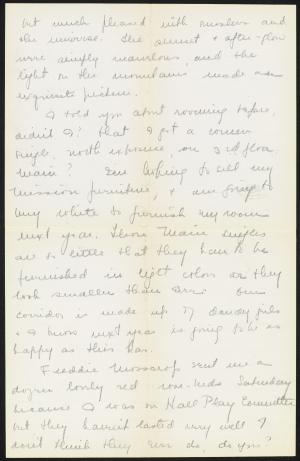 but much pleased with ourselves and
the universe. The sunset & after-glow
were simply marvelous, and the
light on the mountains made an
exquisite picture.
I told you about rooming before,
didn't I? That I got a corner
single, north exposure, on 3rd floor
Main? I'm hoping to sell my
mission furniture, & am going to
buy white to furnish my room
next year. Those Main singles
are so little that they have to be
furnished in light colors or they
look smaller than ever. Our
corridor is made up of dandy girls
& I know next year is going to be as
happy as this has.
Freddie sent me a
dozen lovely red rose-buds Saturday
because I was on Hall Play Committee
but they haven't lasted very well. I
don't think they ever do, do you?